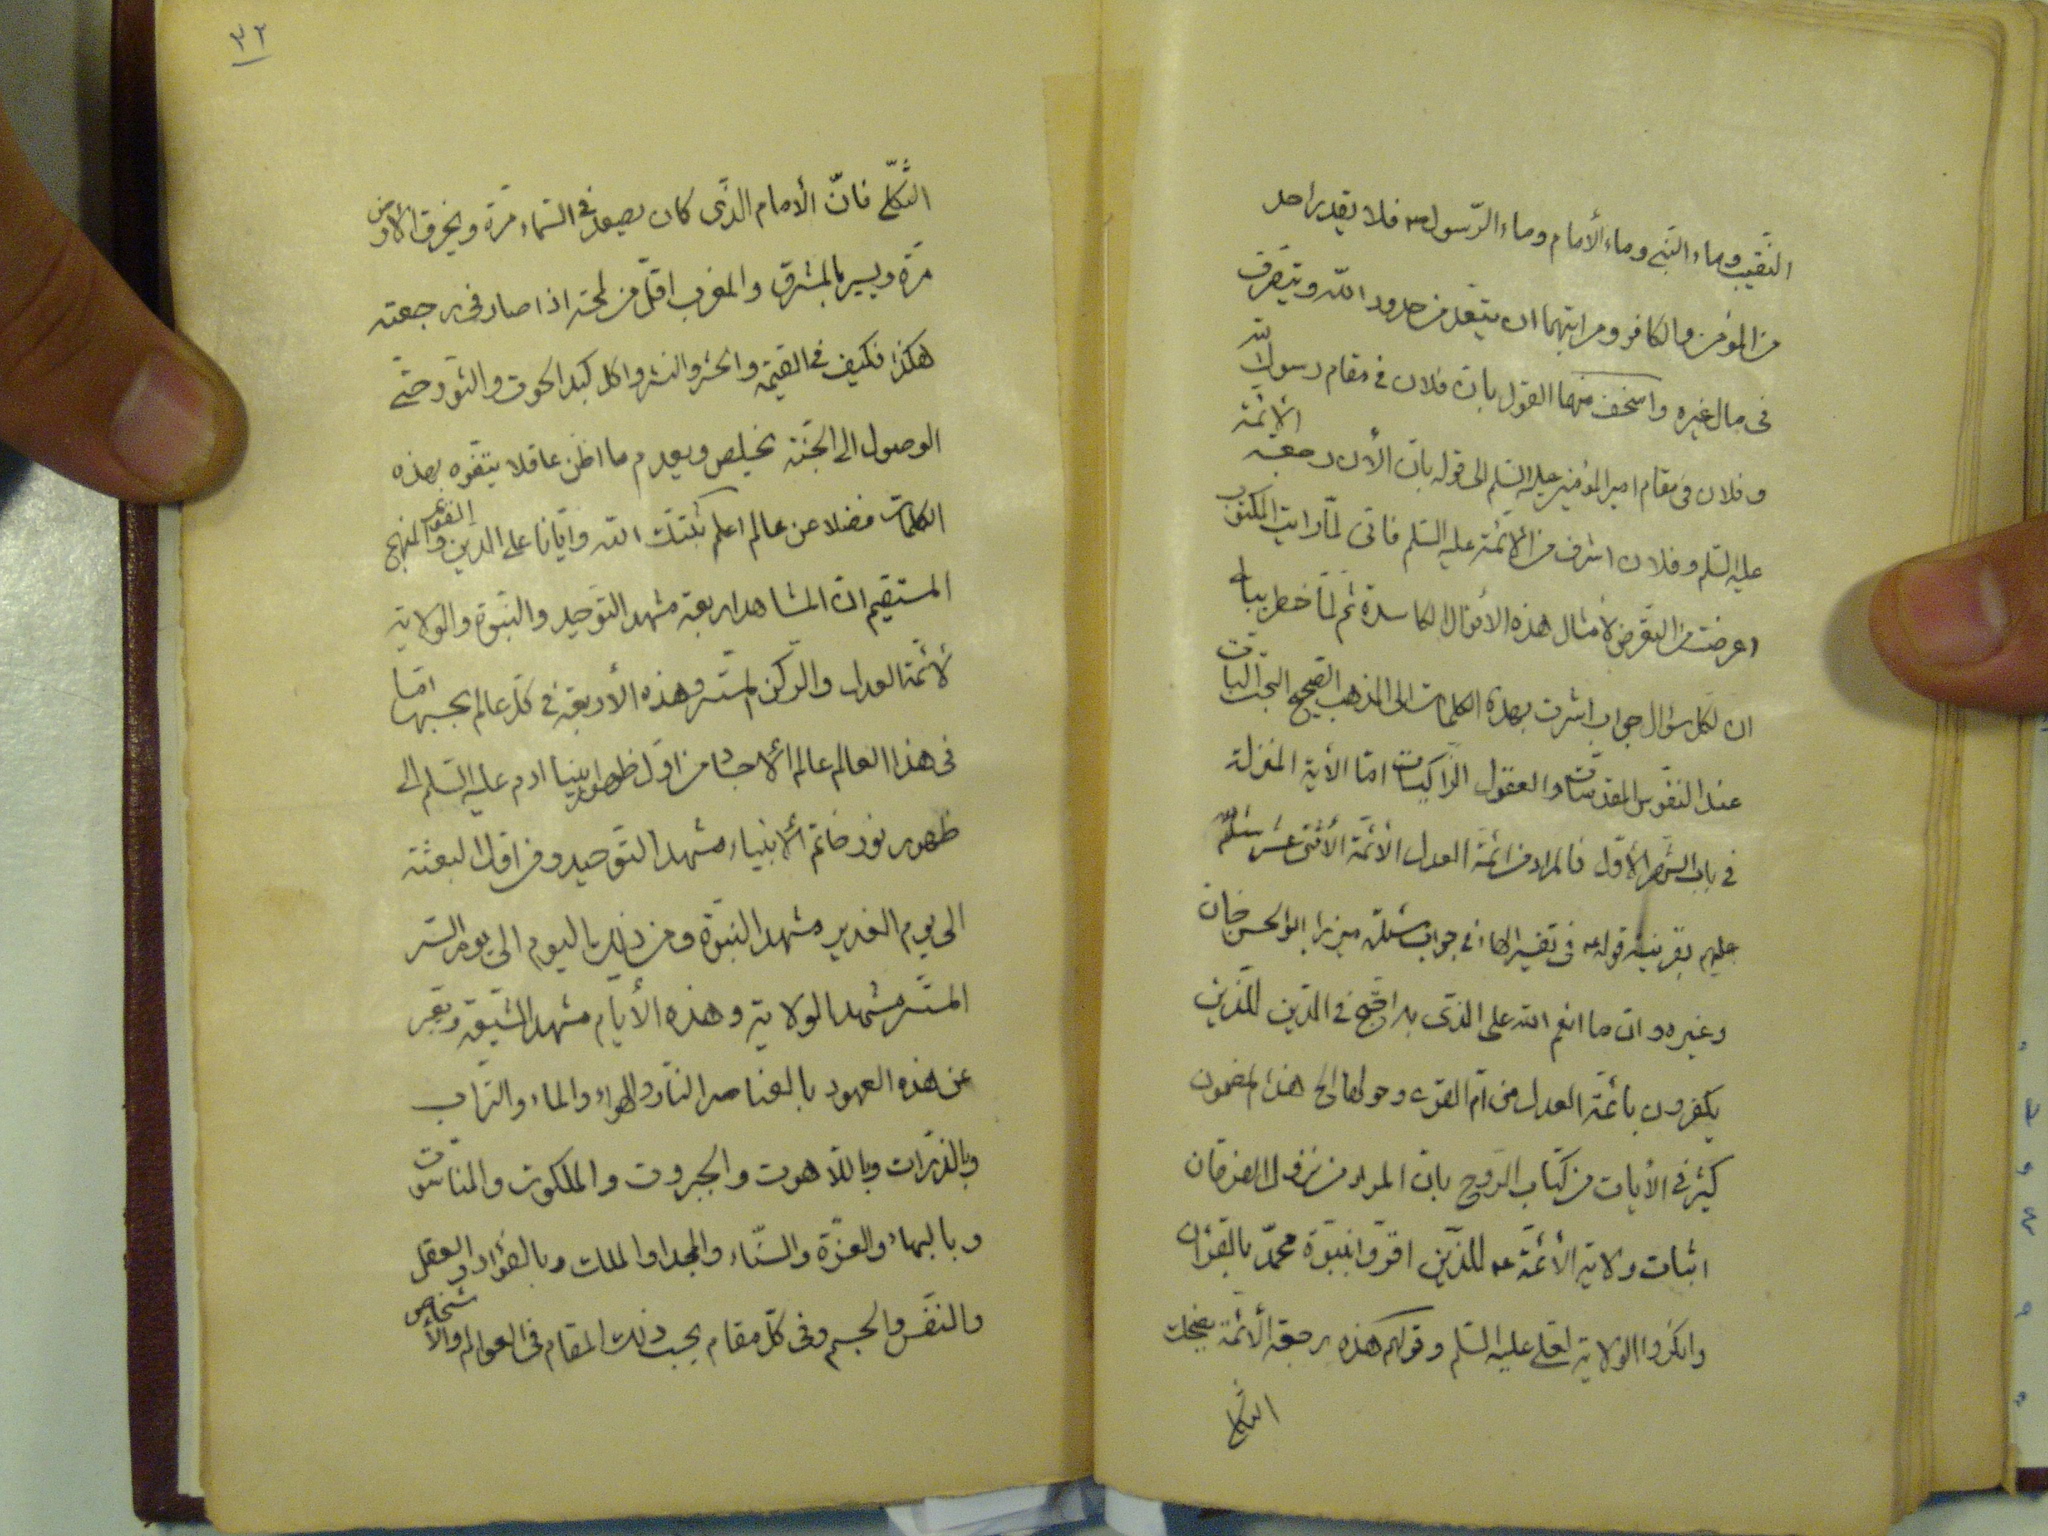 النقیب وماء النبی وماء الأمام وماء الرّسول ص فلا یقدر احد
من المؤمن والکافر ومراتبهما ان یتعد من حدود الله ویتصرف
فی مال غیره واسخف منهما القول بان فلان فی مقام رسول الله
وفلان فی مقام امیر المؤمنین علیه السلم الی قوله بان الأن رجعة الأئمة
علیه السلم وفلان اشرف من الأئمة علیه السلم فانی لمّا رایت المکتوب
اعرضت من التعرض لأمثال هذه الأقوال الکاسدة ثم لمّا خطر ببالی
ان لکل سؤال جواب اشرت بهذه الکلمات الی المذهب الصحیح البحت الباّت
عند النفوس المقدّسات والعقول الزّاکیات امّا الأیة المنزلة
فی باب الشهر الأول فالمراد من ائمّة العدل الأئمّة الأثنی عشر سلام الله
علیهم بقرینة قوله ع فی تفسیر الهاء فی جواب مسئلة میرزا ابوالحسن خان
وغیره وان ما انعم الله علی الذّی بدا حجّ فی الدّین للّذین
یکفرون بائمّة العدل من امّ القری وحولها الخ هذا المضمون
کثیر فی الأیات من کتاب الرّوح بان المراد من نزول الفرقان
اثبات ولایة الأئمّة ع للّذین اقرّوا بنبوّة محمّد بالقران
وانکروا الولایة لعلی علیه السلم وقولهم هذه رجعة الأئمّة یضحک
الثکلی
٣٢
الثّکلی فانّ الأمام الذّی کان یصعد فی السّماء مرّة ویخرق الأرض
مرّة ویسیر بالمشرق والمغرب اقلّ من لمحة اذا صار فی رجعته
هکذا فکیف فی القیمة والحشر والنشر واکل کبد الحوت والثور حتّی
الوصول الی الجنّة یخلص ویعدم ما اظن عاقلا یتفوه بهذه
الکلمات فضلا عن عالم اعلم ثبّتک الله وایّانا علی الدین القویم والمنهج
المستقیم انّ المشاهد اربعة مشهد التوحید والنبّوة والولایة
لأئمّة العدل والرّکن المستسر وهذه الأربعة فی کلّ عالم بحسبها امّا
فی هذا العالم عالم الأجساد من اوّل ظهور نبینا ادم علیه السلم الی
ظهور نور خاتم الأنبیاء مشهد التوحید ومن اوّل البعثة
الی یوم الغدیر مشهد النبوّة ومن ذلک الیوم الی یوم السّر
المستسر مشهد الولایة وهذه الأیّام مشهد الشیعة ویعبر
عن هذه العهود بالعناصر النار والهواء والماء والتراب
وبالذّرات وباللّاهوت والجبروت والملکوت والناسوت
وبالبهاء والعزّة والسّناء والمجد والملک وبالفؤاد والعقل
والنفس والجسم وفی کلّ مقام بحسب ذلک المقام فی العوالم والأشخاص